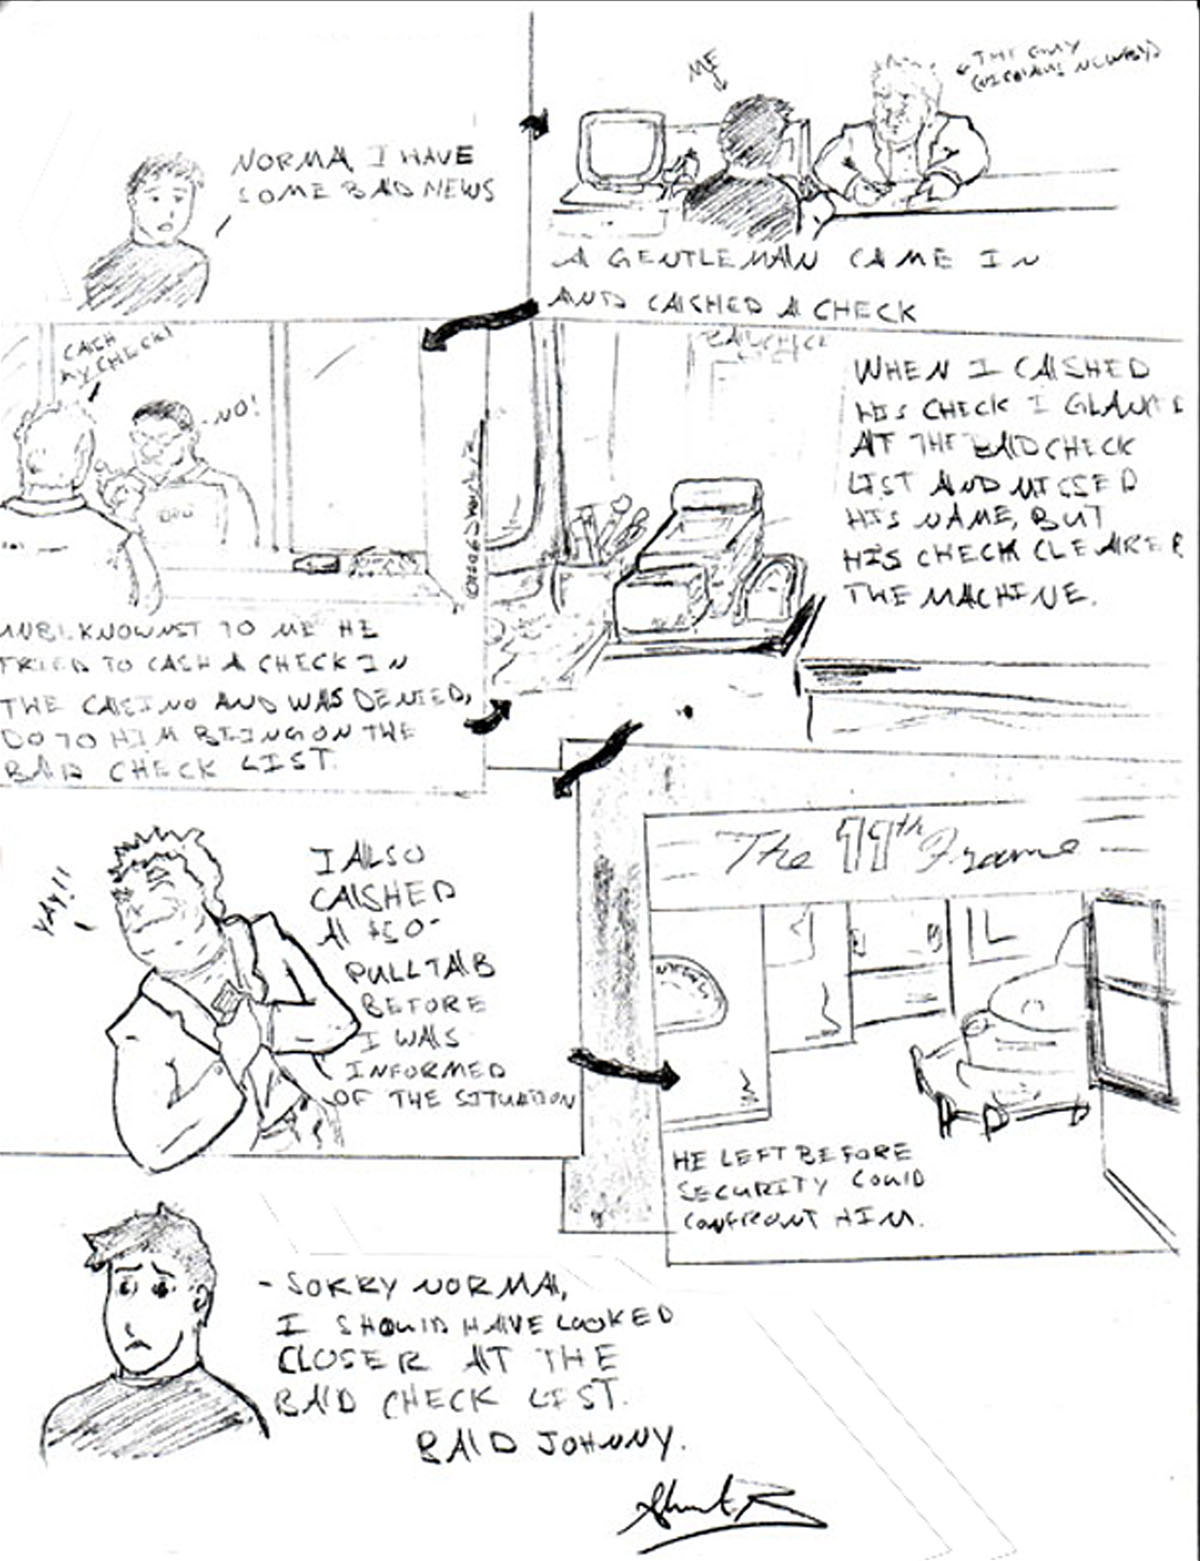 NORMA, I HAVE
SOME BAD NEWS
ME
THE GUY
A GENTLEMAN CAME IN
AND CASHED A CHECK
CASH
MY CHECK!
NO!
UNBEKNOWNST TO ME HE
TRIED TO CASH A CHECK IN
THE CASINO AND WAS DENIED,
DO TO HIM BEING ON THE
BAD CHECK LIST.
BAD CHECK
WHEN I CASHED
HIS CHECK I GLANCE
AT THE BAD CHECK
LIST AND MISSED
HIS NAME, BUT
HIS CHECK CLEARED
THE MACHINE.
YAY!!
I ALSO
CASHED
A $50-
PULLTAB
BEFORE
I WAS
INFORMED
OF THE SITUATION
The 11th Frame
HE LEFT BEFORE
SECURITY COULD
CONFRONT HIM.
- SORRY NORMA,
I SHOULD HAVE LOOKED
CLOSER AT THE
BAD CHECK LIST.
BAD JOHNNY.